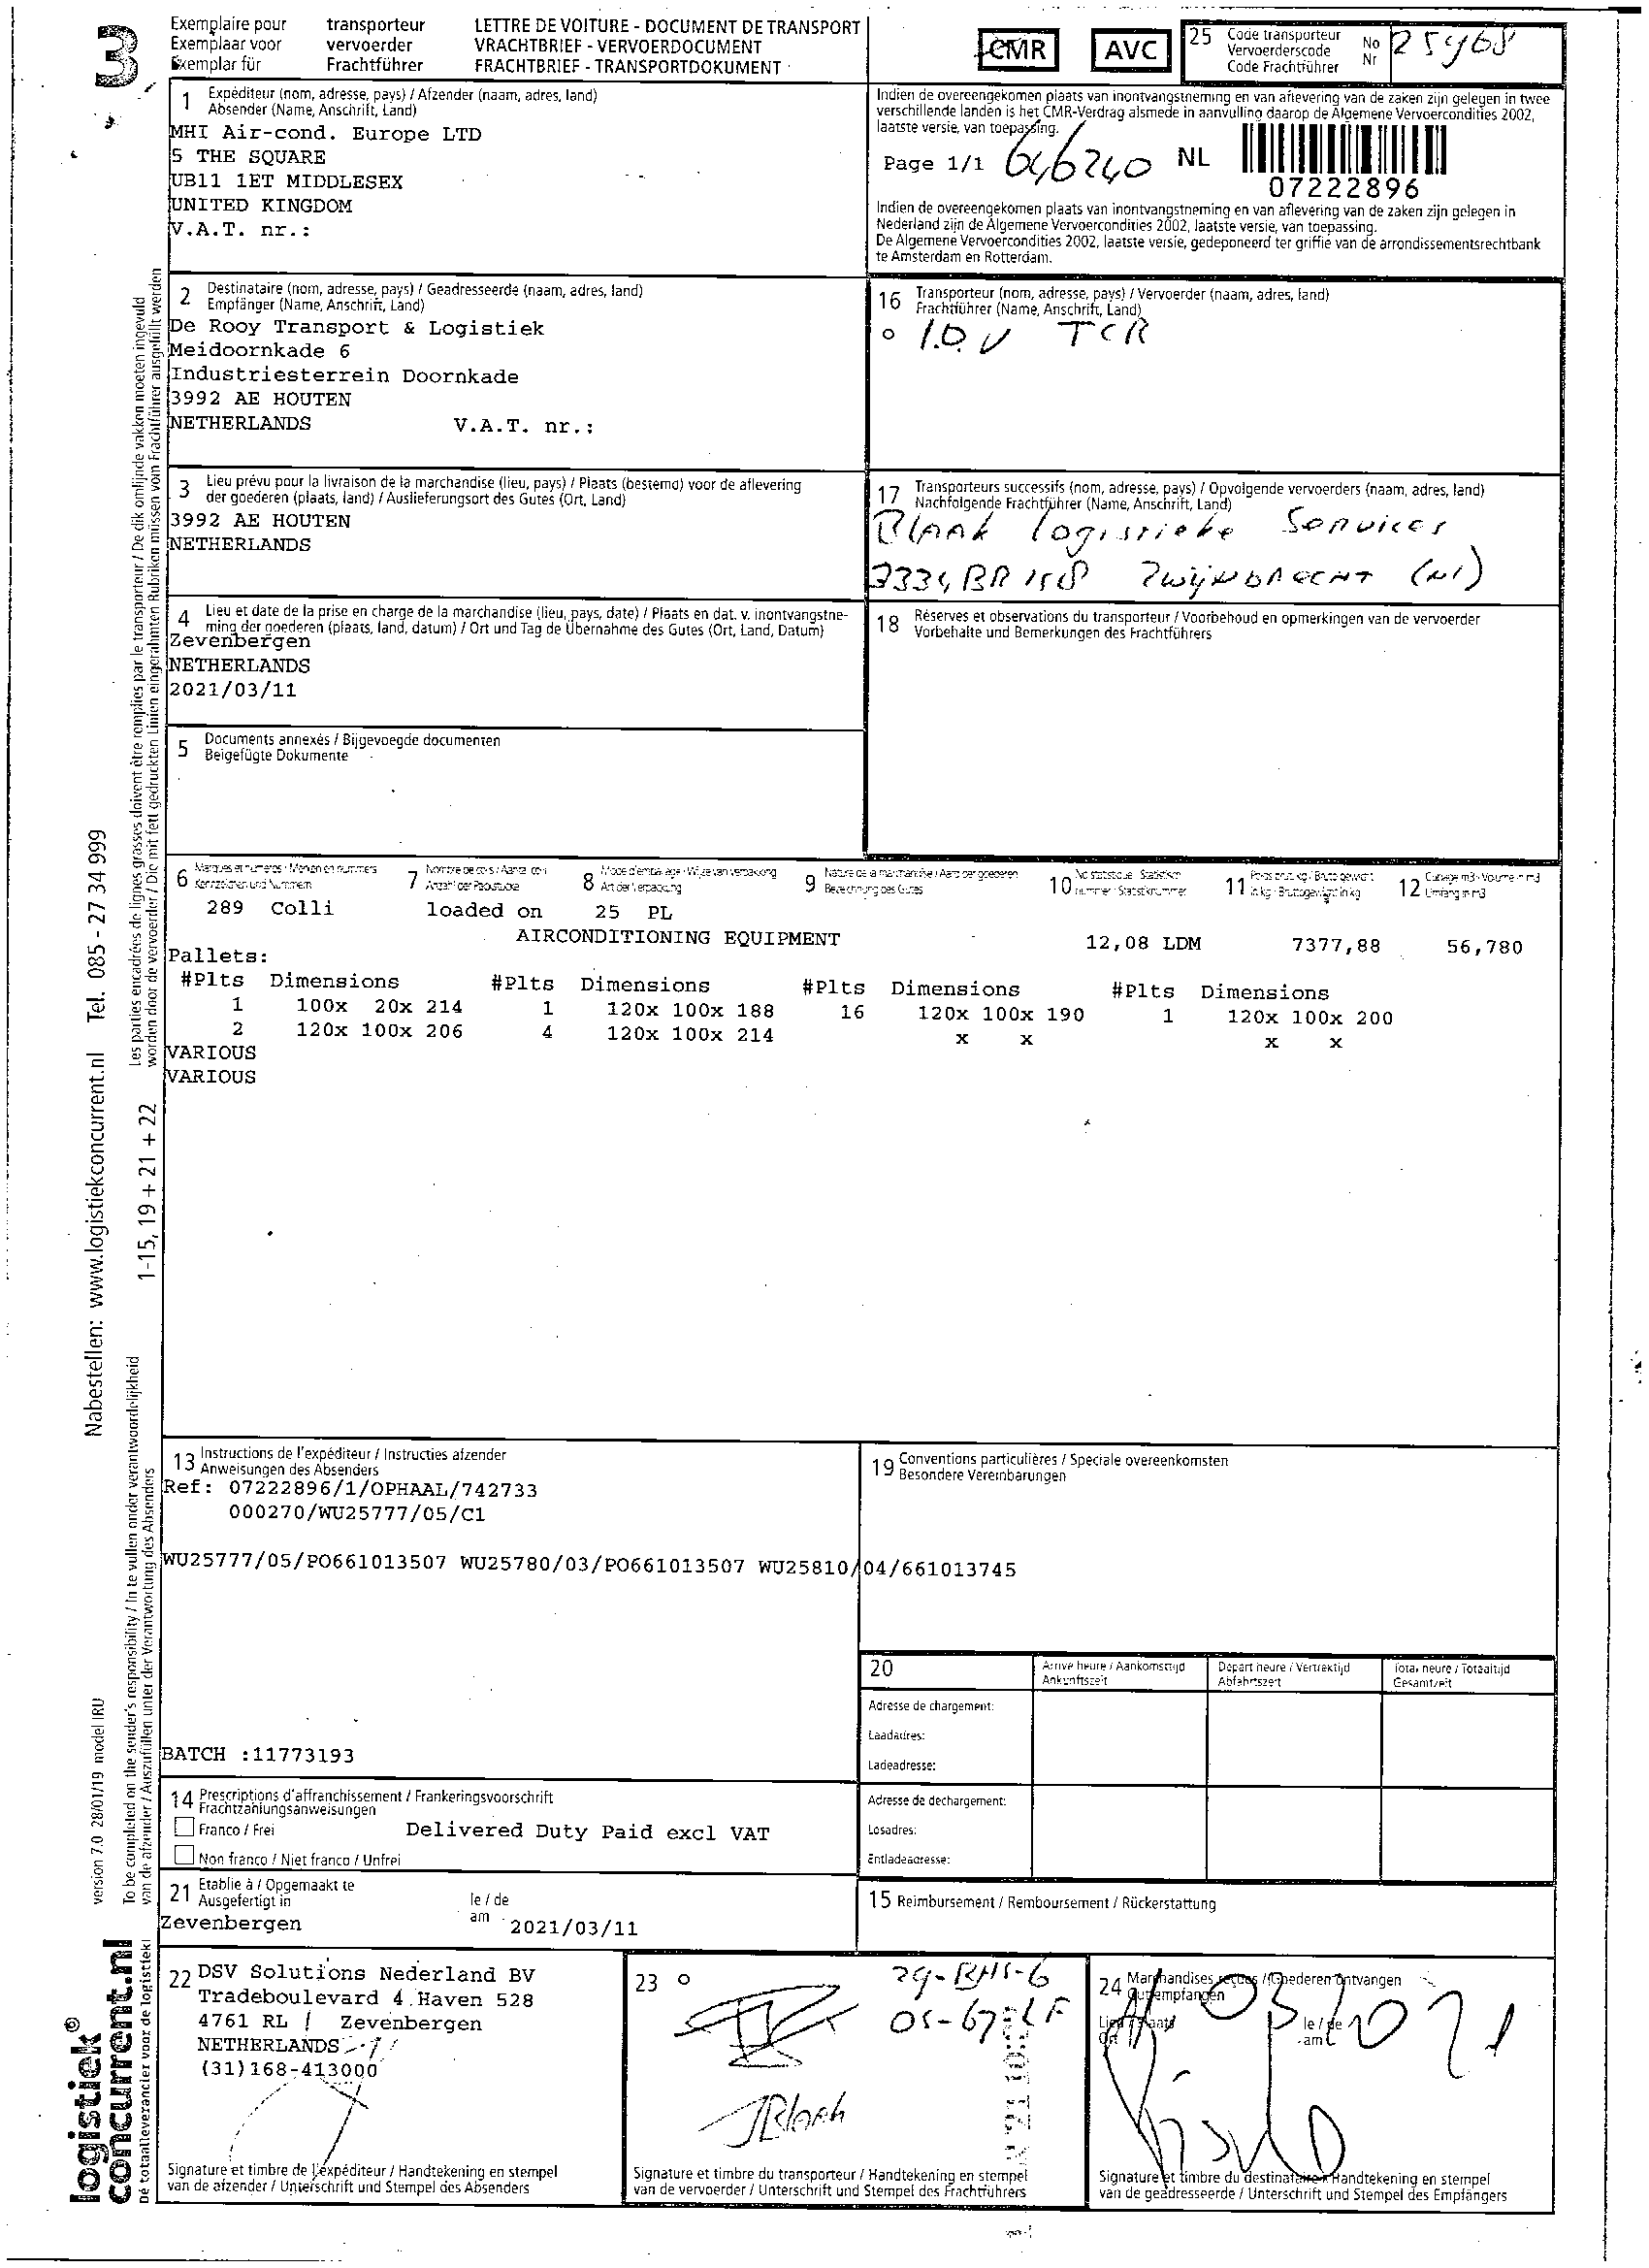 3
Exemplaire pour transporteur
Exemplaar voor vervoerder
Exemplar für Frachtführer
LETTRE DE VOITURE - DOCUMENT DE TRANSPORT
VRACHTBRIEF - VERVOERDOCUMENT
FRACHTBRIEF - TRANSPORTDOKUMENT
CMR
AVC
25 Code transporteur
Vervoerderscode
Code Frachtführer
No
Nr
25468
1 Expéditeur (nom, adresse, pays) / Afzender (naam, adres, land)
Absender (Name, Anschrift, Land)
MHI Air-cond. Europe LTD
5 THE SQUARE
UB11 1ET MIDDLESEX
UNITED KINGDOM
V.A.T. nr.:
Indien de overeengekomen plaats van inontvangstneming en van aflevering van de zaken zijn gelegen in twee
verschillende landen is het CMR-Verdrag alsmede in aanvulling daarop de Algemene Vervoercondities 2002,
laatste versie, van toepassing.
Page 1/1 646240 NL
07222896
Indien de overeengekomen plaats van inontvangstneming en van aflevering van de zaken zijn gelegen in
Nederland zijn de Algemene Vervoercondities 2002, laatste versie, van toepassing.
De Algemene Vervoercondities 2002, laatste versie, gedeponeerd ter griffie van de arrondissementsrechtbank
te Amsterdam en Rotterdam.
2 Destinataire (nom, adresse, pays) / Geadresseerde (naam, adres, land)
Empfänger (Name, Anschrift, Land)
De Rooy Transport & Logistiek
Meidoornkade 6
Industriesterrein Doornkade
3992 AE HOUTEN
NETHERLANDS V.A.T. nr.:
16 Transporteur (nom, adresse, pays) / Vervoerder (naam, adres, land)
Frachtführer (Name, Anschrift, Land)
I.O.V TCR
3 Lieu prévu pour la livraison de la marchandise (lieu, pays) / Plaats (bestemd) voor de aflevering
der goederen (plaats, land) / Auslieferungsort des Gutes (Ort, Land)
3992 AE HOUTEN
NETHERLANDS
17 Transporteurs successifs (nom, adresse, pays) / Opvolgende vervoerders (naam, adres, land)
Nachfolgende Frachtführer (Name, Anschrift, Land)
Blaak logistieke Services
3334 BR 158 Zwijndrecht (Nl)
4 Lieu et date de la prise en charge de la marchandise (lieu, pays, date) / Plaats en dat. v. inontvangstne-
ming der goederen (plaats, land, datum) / Ort und Tag de Übernahme des Gutes (Ort, Land, Datum)
Zevenbergen
NETHERLANDS
2021/03/11
18 Réserves et observations du transporteur / Voorbehoud en opmerkingen van de vervoerder
Vorbehalte und Bemerkungen des Frachtführers
5 Documents annexés / Bijgevoegde documenten
Beigefügte Dokumente
6 Marques et numéros / Merken en nummers
Kennzeichen und Nummern
7 Nombre de colis / Aantal colli
Anzahl der Packstücke
8 Mode d'emballage / Wijze van verpakking
Art der Verpackung
9 Nature de la marchandise / Aard der goederen
Bezeichnung des Gutes
10 No statistique / Statistiek-
nummer / Statistiknummer
11 Poids brut, kg / Bruto gewicht
in kg / Bruttogewicht in kg
12 Cubage m3 / Volume in m3
Umfang in m3
289 Colli loaded on 25 PL
AIRCONDITIONING EQUIPMENT 12,08 LDM 7377,88 56,780
Pallets:
#Plts Dimensions #Plts Dimensions #Plts Dimensions #Plts Dimensions
1 100x 20x 214 1 120x 100x 188 16 120x 100x 190 1 120x 100x 200
2 120x 100x 206 4 120x 100x 214 x x x x
VARIOUS
VARIOUS
13 Instructions de l'expéditeur / Instructies afzender
Anweisungen des Absenders
Ref: 07222896/1/OPHAAL/742733
000270/WU25777/05/C1
WU25777/05/PO661013507 WU25780/03/PO661013507 WU25810/04/661013745
BATCH :11773193
19 Conventions particulières / Speciale overeenkomsten
Besondere Vereinbarungen
20 Arrivé heure / Aankomsttijd
Ankunftszeit
Départ heure / Vertrektijd
Abfahrtszeit
Total heure / Totaaltijd
Gesamtzeit
Adresse de chargement:
Laadadres:
Ladeadresse:
Adresse de dechargement:
Losadres:
Entladeadresse:
14 Prescriptions d'affranchissement / Frankeringsvoorschrift
Frachtzahlungsanweisungen
Franco / Frei
Delivered Duty Paid excl VAT
Non franco / Niet franco / Unfrei
21 Etablie à / Opgemaakt te
Ausgefertigt in
le / de
am
Zevenbergen 2021/03/11
15 Reimbursement / Remboursement / Rückerstattung
22 DSV Solutions Nederland BV
Tradeboulevard 4 Haven 528
4761 RL Zevenbergen
NETHERLANDS
(31)168-413000
Signature et timbre de l'expéditeur / Handtekening en stempel
van de afzender / Unterschrift und Stempel des Absenders
23
29-BHS-6
JBlaak
Signature et timbre du transporteur / Handtekening en stempel
van de vervoerder / Unterschrift und Stempel des Frachtführers
24 Marchandises reçues / Goederen ontvangen
Gut empfangen
le / de
am
11 03 2021
Signature et timbre du destinataire / Handtekening en stempel
van de geadresseerde / Unterschrift und Stempel des Empfängers
Les parties encadrées de lignes grasses doivent être remplies par le transporteur / De dik omlijnde vakken moeten ingevuld
worden door de vervoerder / Die mit fett gedruckten Linien eingerahmten Rubriken müssen vom Frachtführer ausgefüllt werden
1-15, 19 + 21 + 22
To be completed on the sender's responsibility / In te vullen onder verantwoordelijkheid
van de afzender / Auszufüllen unter der Verantwortung des Absenders
Nabestellen: www.logistiekconcurrent.nl Tel. 085 - 27 34 999
version 7.0 28/01/19 model IRU
logistiek®
concurrent.nl
Dé totaalleverancier voor de logistiek!